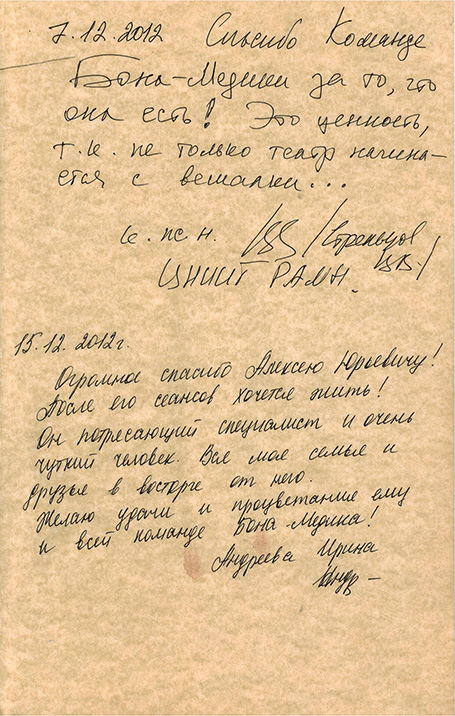 7.12.2012 Спасибо Команде
Бона-Медики за то, что
она есть! Это ценность,
т.к. не только театр начина-
ется с вешалки...
к. пс. н. /Стрельцов
ЦНИИТ РАМН.
15.12.2012г.
Огромное спасибо Алексею Юрьевичу!
После его сеансов хочется жить!
Он потрясающий специалист и очень
чуткий человек. Вся моя семья и
друзья в восторге от него.
Желаю удачи и процветание ему
и всей команде Бона-Медика!
Андреева Ирина